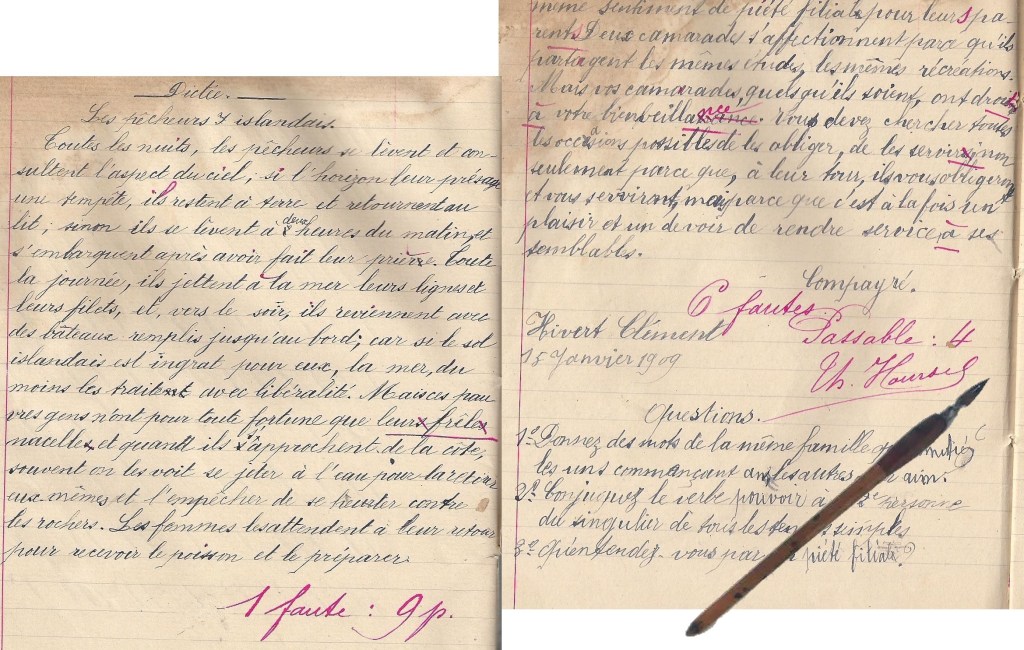 Dictée.
Les pêcheurs islandais.
Toutes les nuits, les pêcheurs se lèvent et con-
sultent l'aspect du ciel, si l'horizon leur présage
une tempête, ils restent à terre et retournent au
lit; sinon ils se lèvent à deux heures du matin, et
s'embarquent après avoir fait leur prière. Toute
la journée, ils jettent à la mer leurs lignes et
leurs filets, et, vers le soir, ils reviennent avec
des bâteaux remplis jusqu'au bord; car si le sol
islandais est ingrat pour eux, la mer, du
moins les traite avec libéralité. Mais ces pau
vres gens n'ont pour toute fortune que leurs frêles
nacelles, et quand ils s'approchent de la côte,
souvent on les voit se jeter à l'eau pour la retirer
eux-mêmes et l'empêcher de se heurter contre
les rochers. Les femmes les attendent à leur retour
pour recevoir le poisson et le préparer.
1 faute : 9 p.
même sentiment de piété filiale pour leurs pa-
rents. Deux camarades s'affectionnent parce qu'ils
partagent les mêmes études, les mêmes récréations.
Mais vos camarades, quels qu'ils soient, ont droit
à votre bienveillance. Vous devez chercher toutes
les occasions possibles de les obliger, de les servir, non
seulement parce que, à leur tour, ils vous obligeront
et vous serviront, mais parce que c'est à la fois un
plaisir et un devoir de rendre service à ses
semblables.
Compayré.
6 fautes.
Passable : 4
Hivert Clément
15 Janvier 1909
Th. Hoursel
Questions.
1º Donnez des mots de la même famille amitié,
les uns commançant am les autres aim.
2º Conjuguez le verbe pouvoir à 2e personne
du singulier de tous les temps simples
3º Qu'entendez-vous par piété filiale?